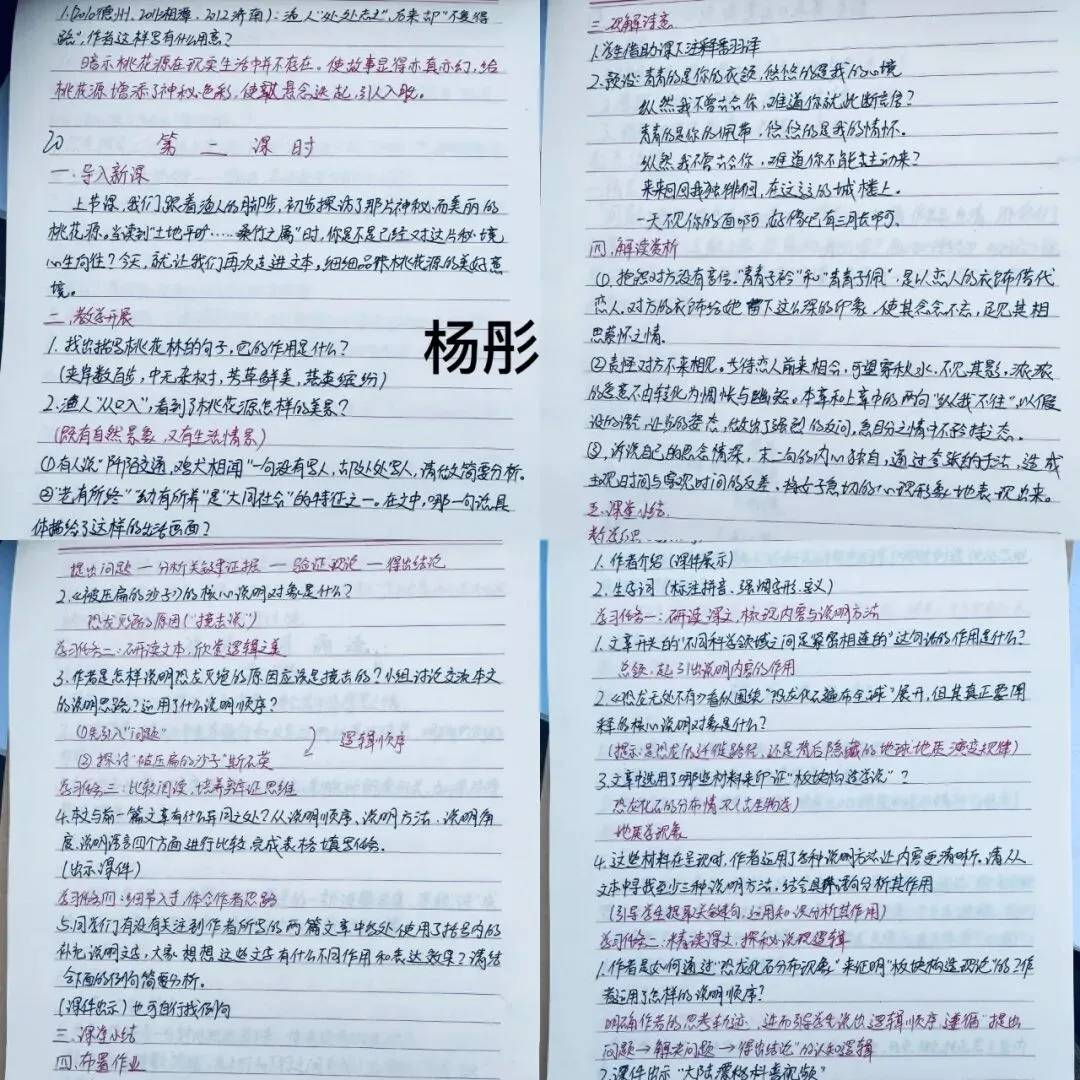 1.(2010德州、2011湘潭、2012济南):渔人"处处志之",后来却"不复得
路",作者这样写有什么用意?
暗示桃花源在现实生活中并不存在。使故事显得亦真亦幻,给
桃花源增添了神秘色彩,使悬念迭起,引人入胜。
20
第二课时
一.导入新课
上节课,我们跟着渔人的脚步,初步探访了那片神秘而美丽的
桃花源。当读到"土地平旷……桑竹之属"时,你是不是已经对这片秘境
心生向往?今天,就让我们再次走进文本,细细品味桃花源的美好意
境。
二.教学开展
1.找出描写桃花林的句子,它的作用是什么?
(夹岸数百步,中无杂树,芳草鲜美,落英缤纷)
2.渔人"从口入",看到了桃花源怎样的美景?
(既有自然景象,又有生活情景)
①有人说"阡陌交通,鸡犬相闻"一句没有写人,却处处写人,请做简要分析。
②"老有所终""幼有所养"是"大同社会"的特征之一。在文中,哪一句话具
体描绘了这样的生活画面?
杨彤
三.理解诗意
1.学生借助课下注释翻译
2.预设:青青的是你的衣领,悠悠的是我的心境
纵然我不曾去会你,难道你就此断音信?
青青的是你的佩带,悠悠的是我的情怀。
纵然我不曾去会你,难道你不能主动来?
来来回回我独徘徊,在这高高的城楼上。
一天不见你的面啊,好像已有三月去啊。
四.解读赏析
①.抱怨对方没有音信。"青青子衿"和"青青子佩",是以恋人的衣饰借代
恋人。对方的衣饰给她留下这么深的印象,使其念念不忘,足见其相
思萦怀之情。
②责怪对方不来相见。当待恋人前来相会,可望穿秋水,不见其影,浓浓
的爱意不由转化为惆怅与幽怨。本章和上章中的两句"纵我不往",以假
设的语气,让步的姿态,做出了强烈的反问,急盼之情中不矜持之态。
③.诉说自己的思念情深,末二句的内心独白,通过夸张的手法,造成
主观时间与客观时间的反差,将女子急切的心理形象地表现出来。
五.课堂小结
教学反思
提出问题—分析关键证据—验证理论—得出结论
2.《被压扁的沙子》的核心说明对象是什么?
恐龙灭绝的原因("撞击说")
学习任务二:研读文本,欣赏逻辑之美
3.作者是怎样说明恐龙灭绝的原因应该是撞击的?小组讨论交流本文
的说明思路?运用了什么说明顺序?
①先引入"问题"
②探讨"被压扁的沙子"斯石英
逻辑顺序
学习任务三:比较阅读,培养辩证思维
4.本文与前一篇文章有什么异同之处?从说明顺序、说明方法、说明角
度、说明语言四个方面进行比较,完成表格填写任务。
(出示课件)
学习任务四:细节入手,体会作者思路
5.同学们有没有关注到作者所写的两篇文章中多处使用了括号内的
补充说明文字,大家想想这些文字有什么不同作用和表达效果?请结
合下面的例句简要分析。
(课件出示)也可自行找例句
三.课堂小结
四.布置作业
1.作者介绍(课件展示)
2.生字词(标注拼音、强调字形、义)
学习任务一:研读课文,梳理内容与说明方法
1.文章开头的"不同科学领域之间是紧密相连的"这句话的作用是什么?
总领,起引出说明内容的作用
2.《恐龙无处不有》看似围绕"恐龙化石遍布全球"展开,但其真正要阐
释的核心说明对象是什么?
(提示:是恐龙的迁徙路径,还是背后隐藏的地球地质演变规律)
3.文章中选用了哪些材料来印证"板块构造学说"?
恐龙化石的分布情况(古生物学)
地质学现象
4.这些材料在呈现时,作者运用了多种说明方法让内容更清晰。请从
文本中寻找至少三种说明方法,结合具体语句分析其作用
(引导学生提取关键句,运用知识分析其作用)
学习任务二:精读课文,探秘说理逻辑
1.作者是如何通过"恐龙化石分布现象"来证明"板块构造理论"的?作
者运用了怎样的说明顺序?
明确作者的思考轨迹,进而引导学生说出逻辑顺序,遵循"提出
问题→解决问题→得出结论"的认知逻辑
2.课件出示"大陆漂移科普视频"